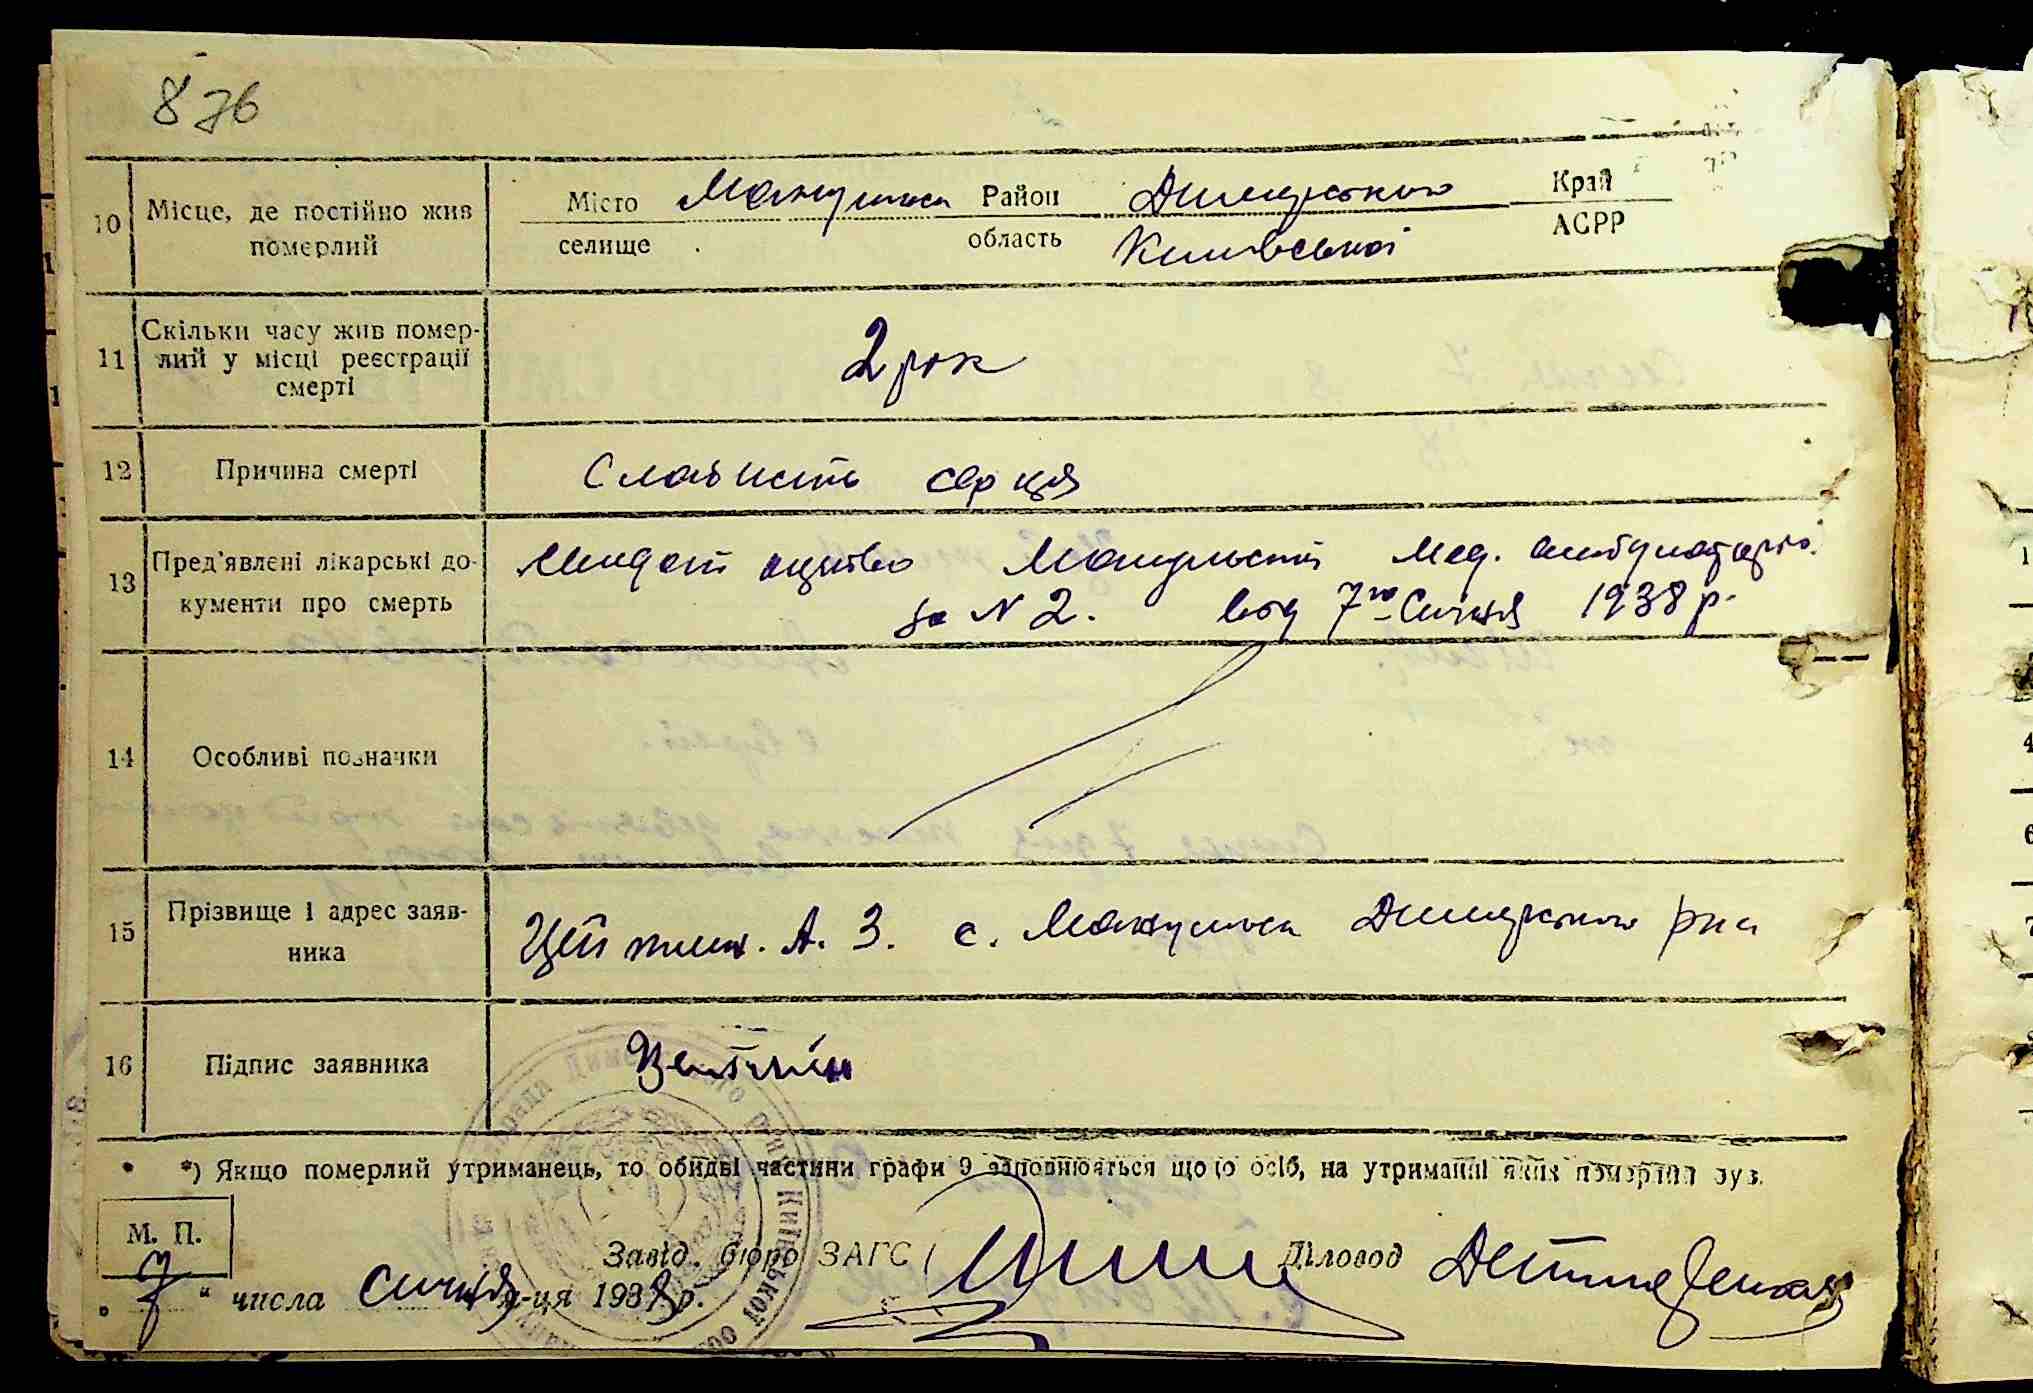 876
10 Місце, де постійно жив померлий
Місто Район Димерського Край
селище область Київської АСРР
11 Скільки часу жив помер-
лий у місці реєстрації
смерті
2 рок
12 Причина смерті Слабисть серця
13 Пред'явлені лікарські до-
кументи про смерть
Мед. амбулаторії
за N 2. від 7го Січня 1938 р.
14 Особливі позначки
15 Прізвище і адрес заяв-
ника
Цейтлин. А. З. с. Димерського рна
16 Підпис заявника Цейтлін
*) Якщо померлий утриманець, то обидві частини графи 9 заповнюються що до осіб, на утриманні яких померлий був.
М. П.
Завід. бюро ЗАГС Діловод
„ 7 “ числа січня м-ця 1938 р.